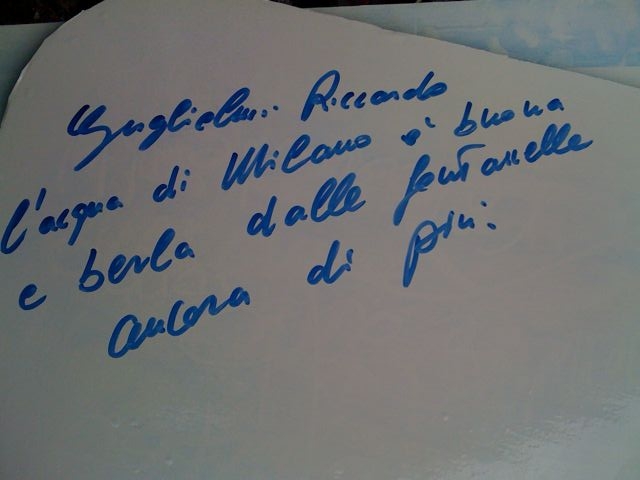 Guglielmi Riccardo
l'acqua di Milano è buona
e berla dalle fontanelle
ancora di più.